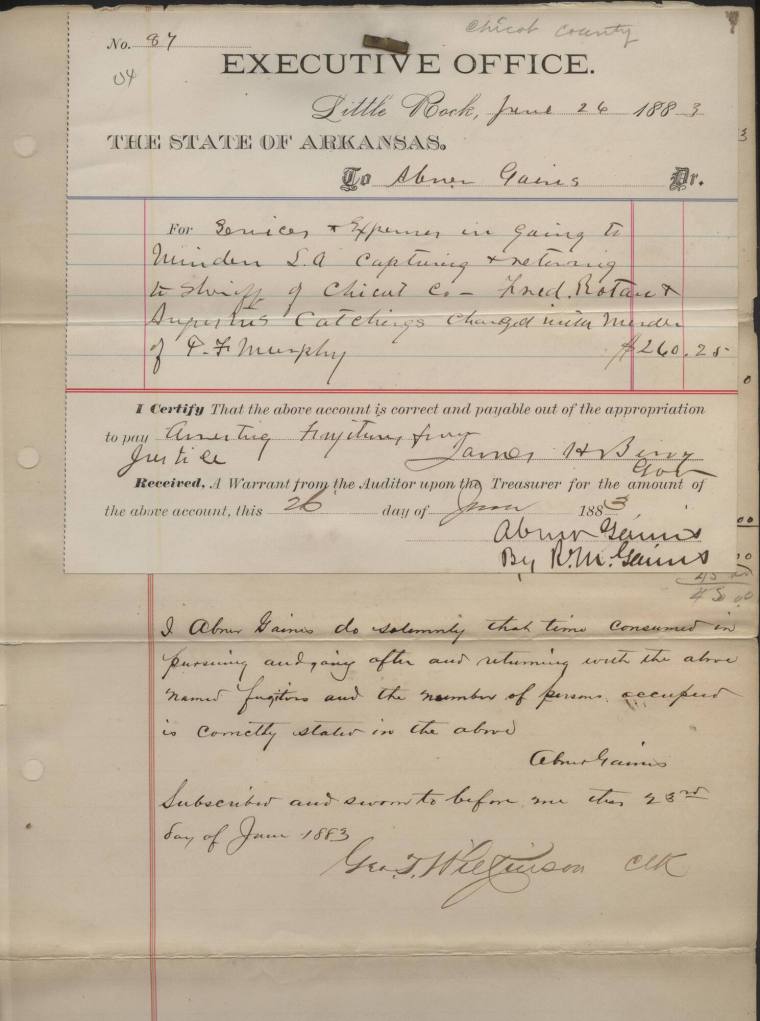 Chicot County
No. 87
EXECUTIVE OFFICE.
Little Rock, June 26 1883
THE STATE OF ARKANSAS.
To Abner Gaines Dr.
For Services & Expenses in going to
Minden L.A Capturing & returning
to Shriff of Chicot Co – Fred. Rotan &
Augustus Catchings Charged with Murder
of P. F Murphy $260.25
I Certify That the above account is correct and payable out of the appropriation
to pay Arresting Fugitives from
Justice James H Berry
Gov
Received, A Warrant from the Auditor upon the Treasurer for the amount of
the above account, this 26 day of June 1883
Abner Gaines
By R. M. Gaines
45
45 00
I Abner Gaines do solemnly that time consumed in
pursuing and going after and returning with the above
named fugitives and the number of persons occupied
is correctly stated in the above
Abner Gaines
Subscribed and sworn to before me this 23rd
day of June 1883
Geo. T. Wilkinson Clk